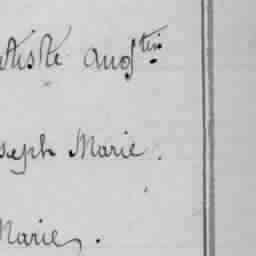 atiste Augtin
seph Marie.
Marie.